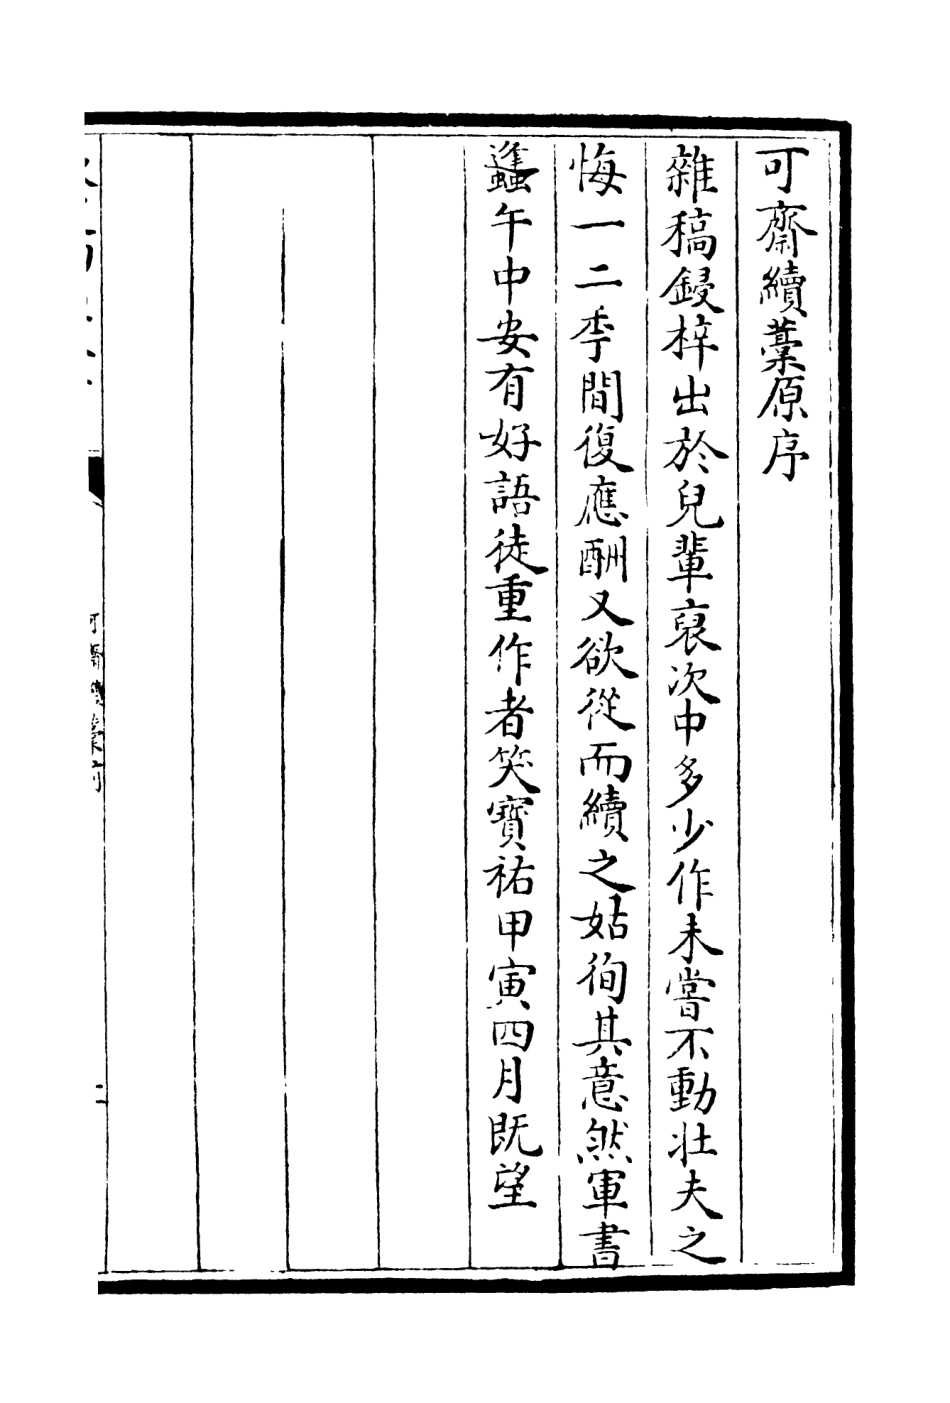 可齋續藁原序
雜稿鋟梓出於兒輩裒次中多少作未嘗不動壯夫之
悔一二季間復應酬又欲從而續之姑徇其意然軍書
蠭午中安有好語徒重作者笑寳祐甲寅四月既望